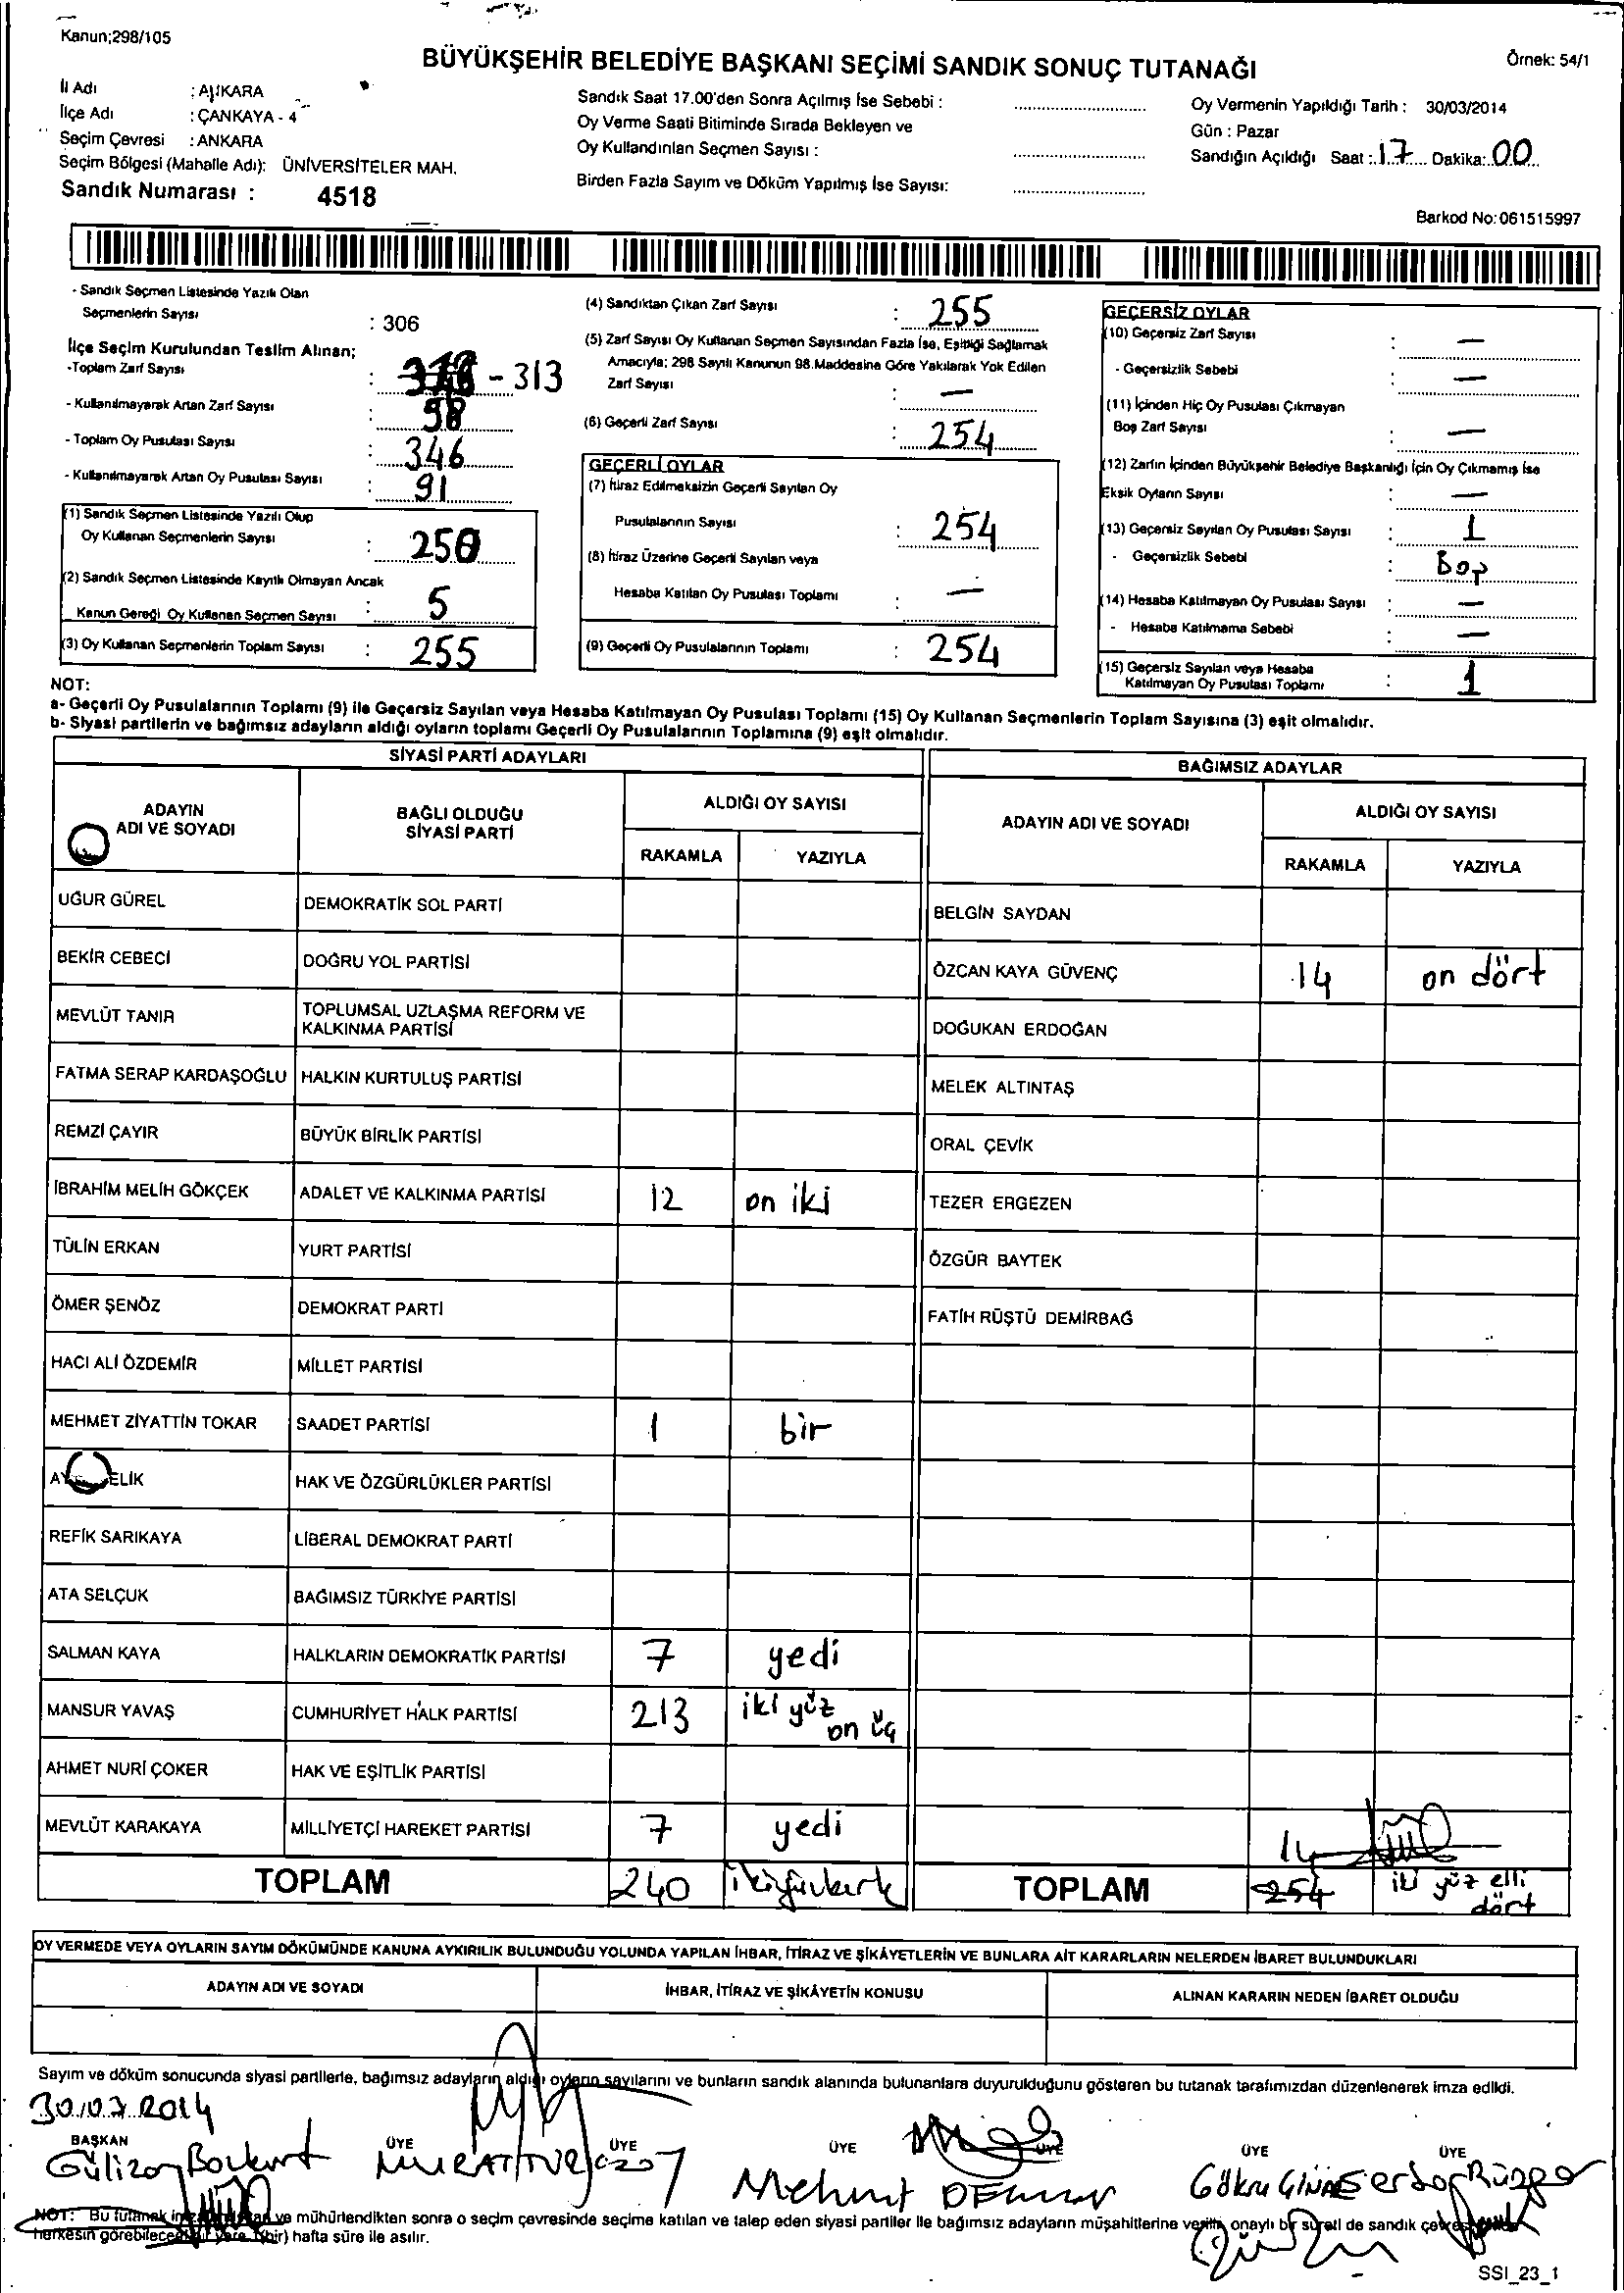 Kanun;298/105
BÜYÜKŞEHİR BELEDİYE BAŞKANI SEÇİMİ SANDIK SONUÇ TUTANAĞI
Örnek: 54/1
İl Adı : ANKARA
İlçe Adı : ÇANKAYA - 4
Seçim Çevresi : ANKARA
Seçim Bölgesi (Mahalle Adı): ÜNİVERSİTELER MAH.
Sandık Numarası : 4518
Sandık Saat 17.00'den Sonra Açılmış İse Sebebi :
Oy Verme Saati Bitiminde Sırada Bekleyen ve
Oy Kullandırılan Seçmen Sayısı :
Birden Fazla Sayım ve Döküm Yapılmış İse Sayısı:
Oy Vermenin Yapıldığı Tarih : 30/03/2014
Gün : Pazar
Sandığın Açıldığı Saat : 17 Dakika: 00
Barkod No: 061515997
- Sandık Seçmen Listesinde Yazılı Olan
Seçmenlerin Sayısı : 306
İlçe Seçim Kurulundan Teslim Alınan;
-Toplam Zarf Sayısı : - 313
- Kullanılmayarak Artan Zarf Sayısı : 58
- Toplam Oy Pusulası Sayısı : 346
- Kullanılmayarak Artan Oy Pusulası Sayısı : 91
(1) Sandık Seçmen Listesinde Yazılı Olup
Oy Kullanan Seçmenlerin Sayısı : 250
(2) Sandık Seçmen Listesinde Kayıtlı Olmayan Ancak
Kanun Gereği Oy Kullanan Seçmen Sayısı : 5
(3) Oy Kullanan Seçmenlerin Toplam Sayısı : 255
(4) Sandıktan Çıkan Zarf Sayısı : 255
(5) Zarf Sayısı Oy Kullanan Seçmen Sayısından Fazla İse, Eşitliği Sağlamak
Amacıyla; 298 Sayılı Kanunun 98.Maddesine Göre Yakılarak Yok Edilen
Zarf Sayısı : —
(6) Geçerli Zarf Sayısı : 254
GEÇERLİ OYLAR
(7) İtiraz Edilmeksizin Geçerli Sayılan Oy
Pusulalarının Sayısı : 254
(8) İtiraz Üzerine Geçerli Sayılan veya
Hesaba Katılan Oy Pusulası Toplamı : —
(9) Geçerli Oy Pusulalarının Toplamı : 254
GEÇERSİZ OYLAR
(10) Geçersiz Zarf Sayısı : —
- Geçersizlik Sebebi : —
(11) İçinden Hiç Oy Pusulası Çıkmayan
Boş Zarf Sayısı : —
(12) Zarfın İçinden Büyükşehir Belediye Başkanlığı İçin Oy Çıkmamış İse
Eksik Oyların Sayısı : —
(13) Geçersiz Sayılan Oy Pusulası Sayısı : 1
- Geçersizlik Sebebi : Boş
(14) Hesaba Katılmayan Oy Pusulası Sayısı : —
- Hesaba Katılmama Sebebi : —
(15) Geçersiz Sayılan veya Hesaba
Katılmayan Oy Pusulası Toplamı : 1
NOT:
a- Geçerli Oy Pusulalarının Toplamı (9) ile Geçersiz Sayılan veya Hesaba Katılmayan Oy Pusulası Toplamı (15) Oy Kullanan Seçmenlerin Toplam Sayısına (3) eşit olmalıdır.
b- Siyasi partilerin ve bağımsız adayların aldığı oyların toplamı Geçerli Oy Pusulalarının Toplamına (9) eşit olmalıdır.
SİYASİ PARTİ ADAYLARI
ADAYIN ADI VE SOYADI
BAĞLI OLDUĞU SİYASİ PARTİ
ALDIĞI OY SAYISI
RAKAMLA YAZIYLA
UĞUR GÜREL DEMOKRATİK SOL PARTİ
BEKİR CEBECİ DOĞRU YOL PARTİSİ
MEVLÜT TANIR TOPLUMSAL UZLAŞMA REFORM VE
KALKINMA PARTİSİ
FATMA SERAP KARDAŞOĞLU HALKIN KURTULUŞ PARTİSİ
REMZİ ÇAYIR BÜYÜK BİRLİK PARTİSİ
İBRAHİM MELİH GÖKÇEK ADALET VE KALKINMA PARTİSİ 12 on iki
TÜLİN ERKAN YURT PARTİSİ
ÖMER ŞENÖZ DEMOKRAT PARTİ
HACI ALİ ÖZDEMİR MİLLET PARTİSİ
MEHMET ZİYATTİN TOKAR SAADET PARTİSİ 1 bir
HAK VE ÖZGÜRLÜKLER PARTİSİ
REFİK SARIKAYA LİBERAL DEMOKRAT PARTİ
ATA SELÇUK BAĞIMSIZ TÜRKİYE PARTİSİ
SALMAN KAYA HALKLARIN DEMOKRATİK PARTİSİ 7 yedi
MANSUR YAVAŞ CUMHURİYET HALK PARTİSİ 213 iki yüz on üç
AHMET NURİ ÇOKER HAK VE EŞİTLİK PARTİSİ
MEVLÜT KARAKAYA MİLLİYETÇİ HAREKET PARTİSİ 7 yedi
TOPLAM 240 ikiyüzkırk
BAĞIMSIZ ADAYLAR
ADAYIN ADI VE SOYADI
ALDIĞI OY SAYISI
RAKAMLA YAZIYLA
BELGİN SAYDAN
ÖZCAN KAYA GÜVENÇ 14 on dört
DOĞUKAN ERDOĞAN
MELEK ALTINTAŞ
ORAL ÇEVİK
TEZER ERGEZEN
ÖZGÜR BAYTEK
FATİH RÜŞTÜ DEMİRBAĞ
14
TOPLAM 254 iki yüz elli dört
OY VERMEDE VEYA OYLARIN SAYIM DÖKÜMÜNDE KANUNA AYKIRILIK BULUNDUĞU YOLUNDA YAPILAN İHBAR, İTİRAZ VE ŞİKÂYETLERİN VE BUNLARA AİT KARARLARIN NELERDEN İBARET BULUNDUKLARI
ADAYIN ADI VE SOYADI İHBAR, İTİRAZ VE ŞİKÂYETİN KONUSU ALINAN KARARIN NEDEN İBARET OLDUĞU
Sayım ve döküm sonucunda siyasi partilerle, bağımsız adayların aldığı oyların sayılarını ve bunların sandık alanında bulunanlara duyurulduğunu gösteren bu tutanak tarafımızdan düzenlenerek imza edildi.
30.03.2014
BAŞKAN ÜYE ÜYE ÜYE ÜYE ÜYE ÜYE
Mehmet
NOT: Bu tutanak ve mühürlendikten sonra o seçim çevresinde seçime katılan ve talep eden siyasi partiler ile bağımsız adayların müşahitlerine verilir, onaylı bir sureti de sandık
herkesin görebileceği (bir) hafta süre ile asılır.
SSI_23_1